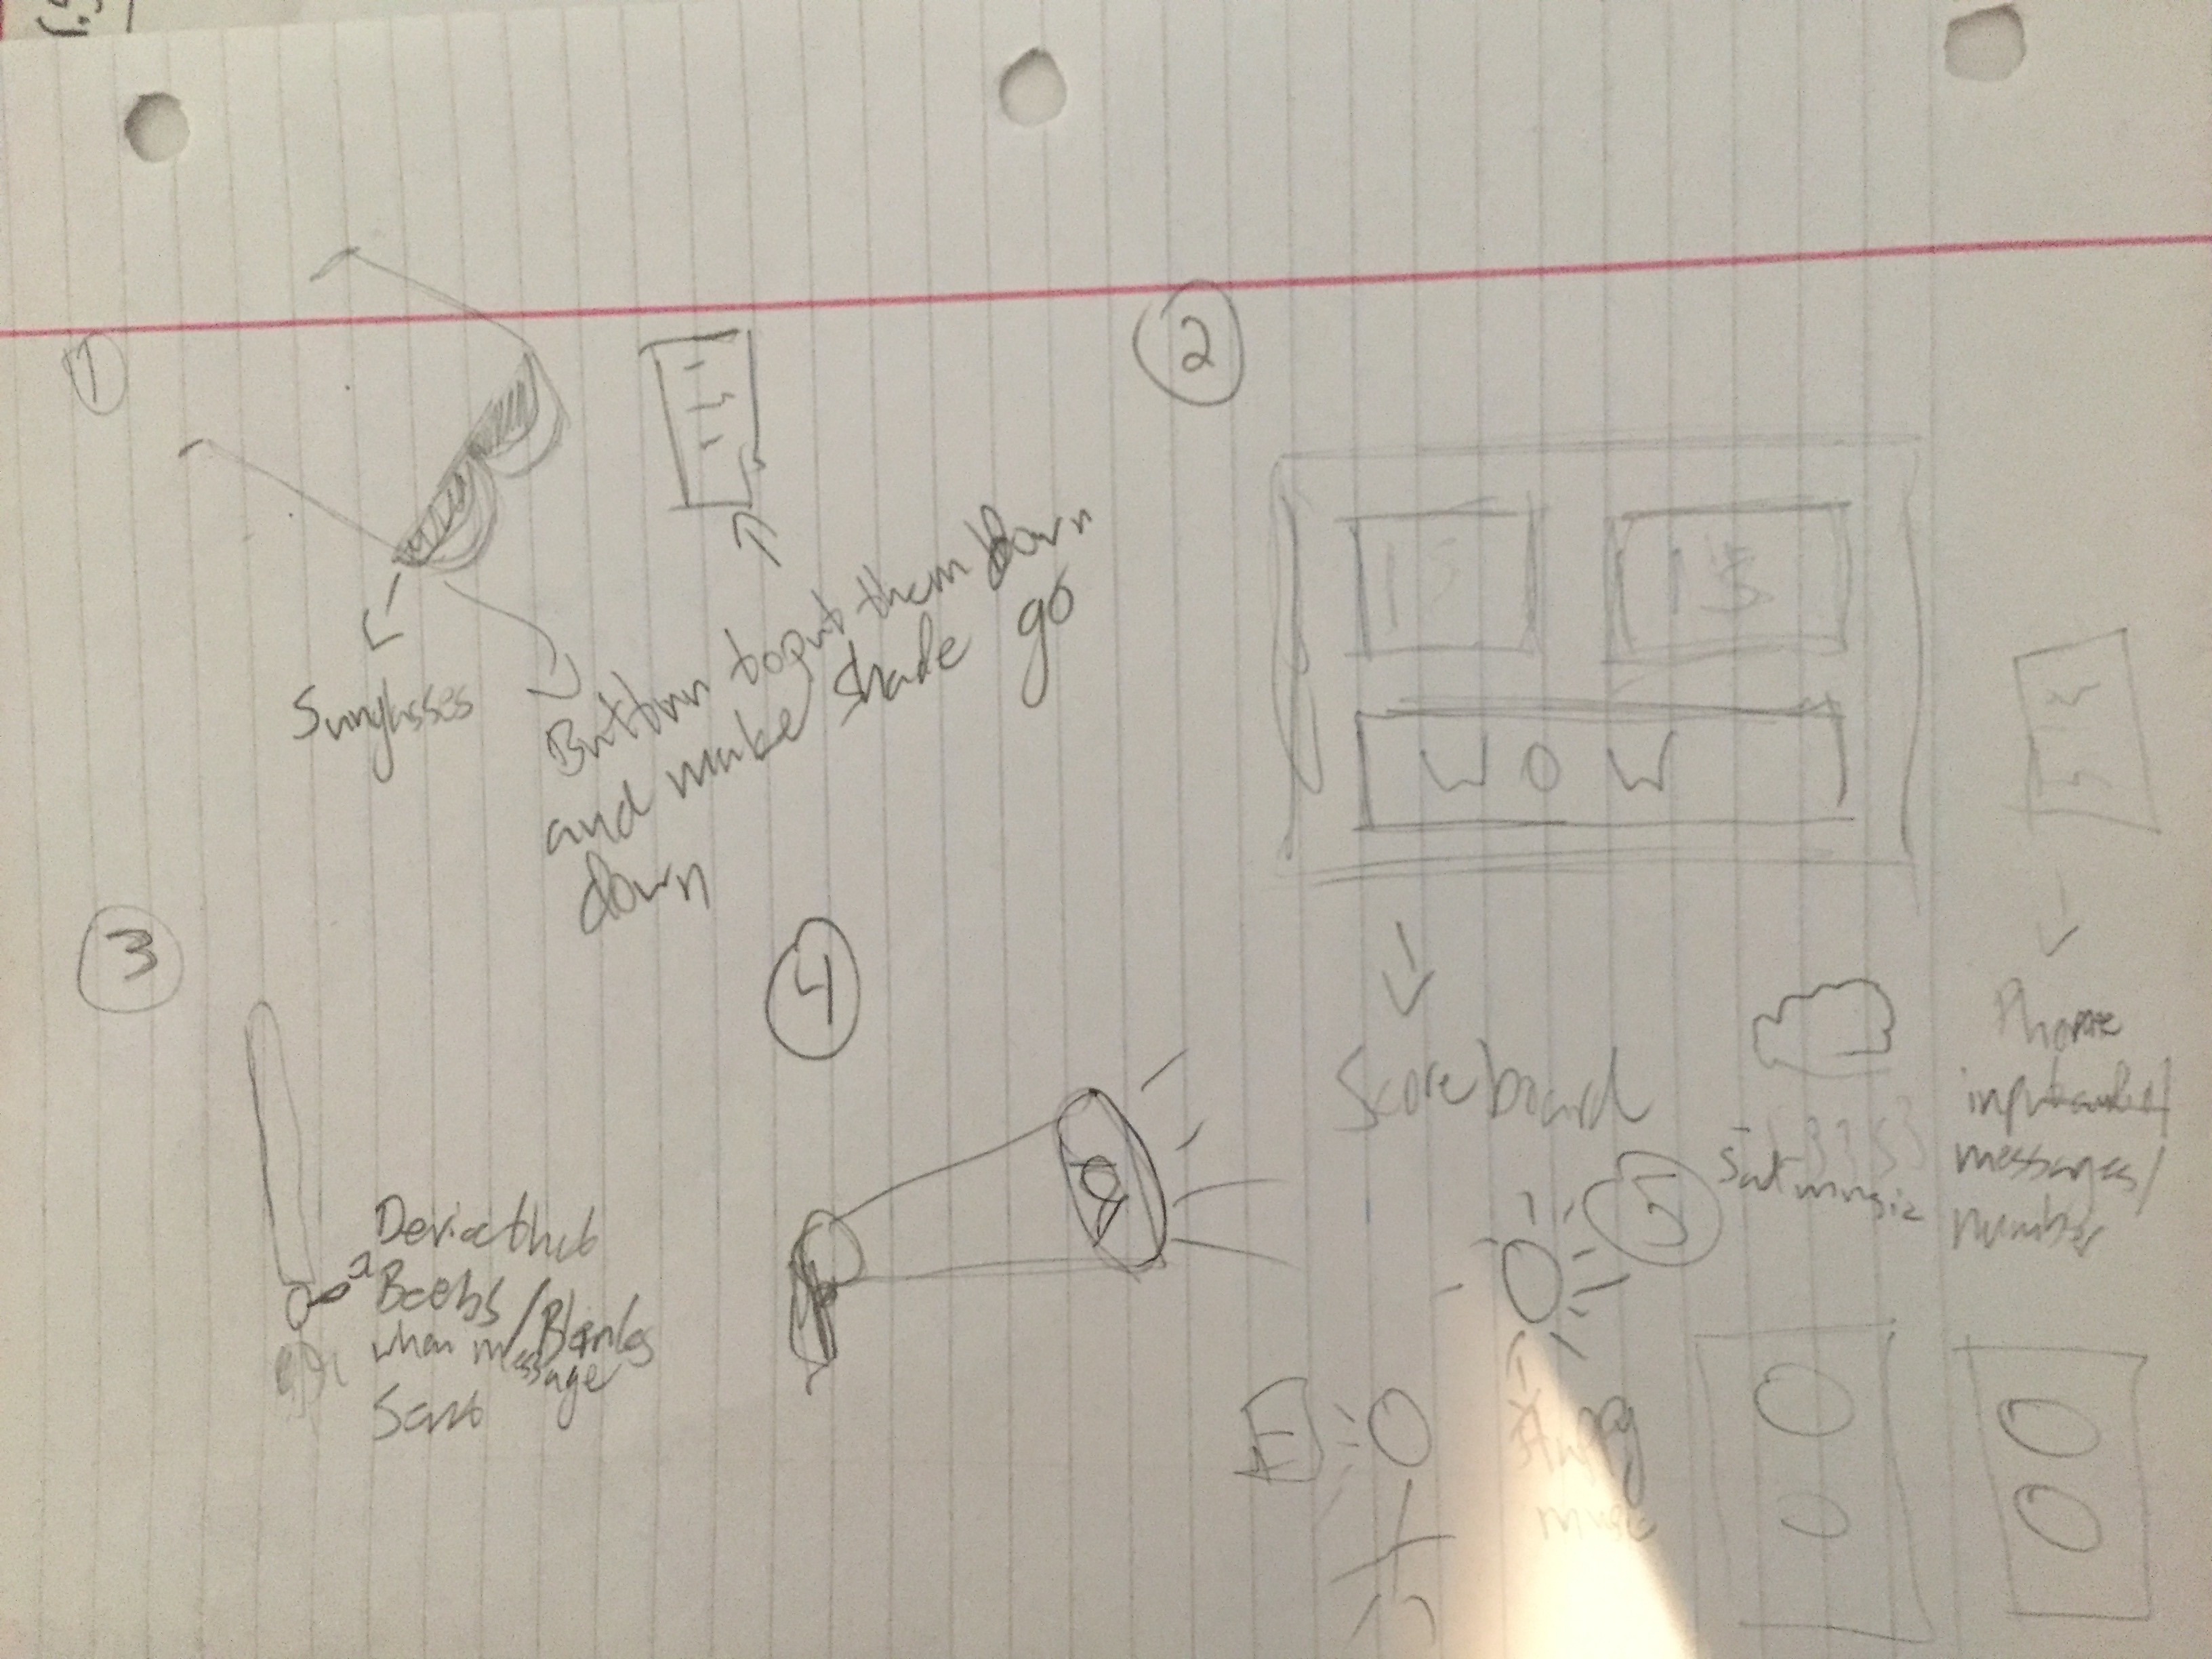 1
Sunglasses
Button to put them down
and make shade go
down
2
15
W O W
Scoreboard
Phone
input
messages/
number
3
Device that
Beebs/Blinks
when message
Sent
4
5
Sad music
Happy
music